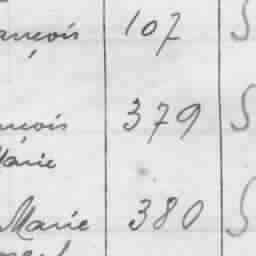 ançois 107 S
ançois 379 S
Marie
Marie 380 S